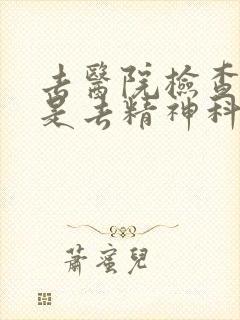 去醫院檢查
是去精神科
蕭蜜兒